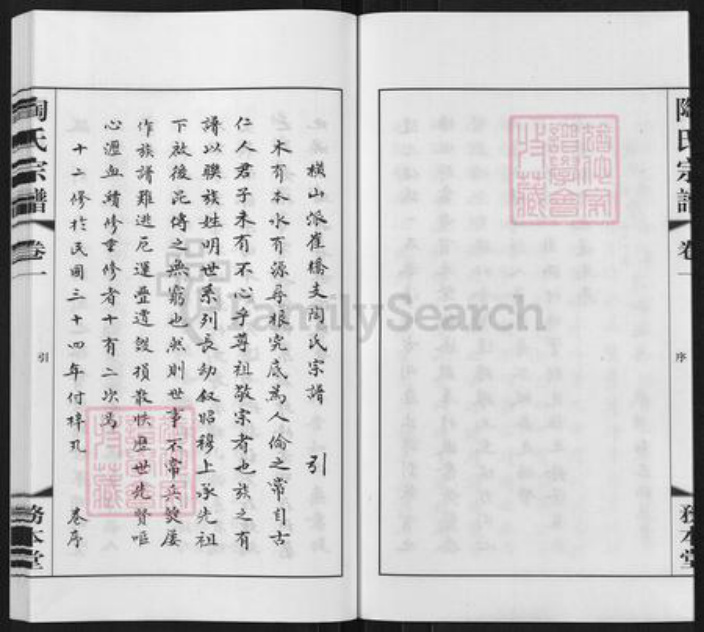 陶氏宗譜
卷一
序
務本堂
橫山派崔橋支陶氏宗譜 引
木有本水有源尋根究底為人倫之常自古
仁人君子未有不心乎尊祖敬宗者也族之有
譜以聯族姓明世系列長幼叙昭穆上承先祖
下啟後昆傳之無窮也然則世事不常兵燹屡
作族譜難逃厄運疊遭毀損散佚歷世先賢嘔
心瀝血續修重修者十有二次焉
十二修於民國三十四年付梓 卷序
陶氏宗譜
卷一
引
務本堂
FamilySearch